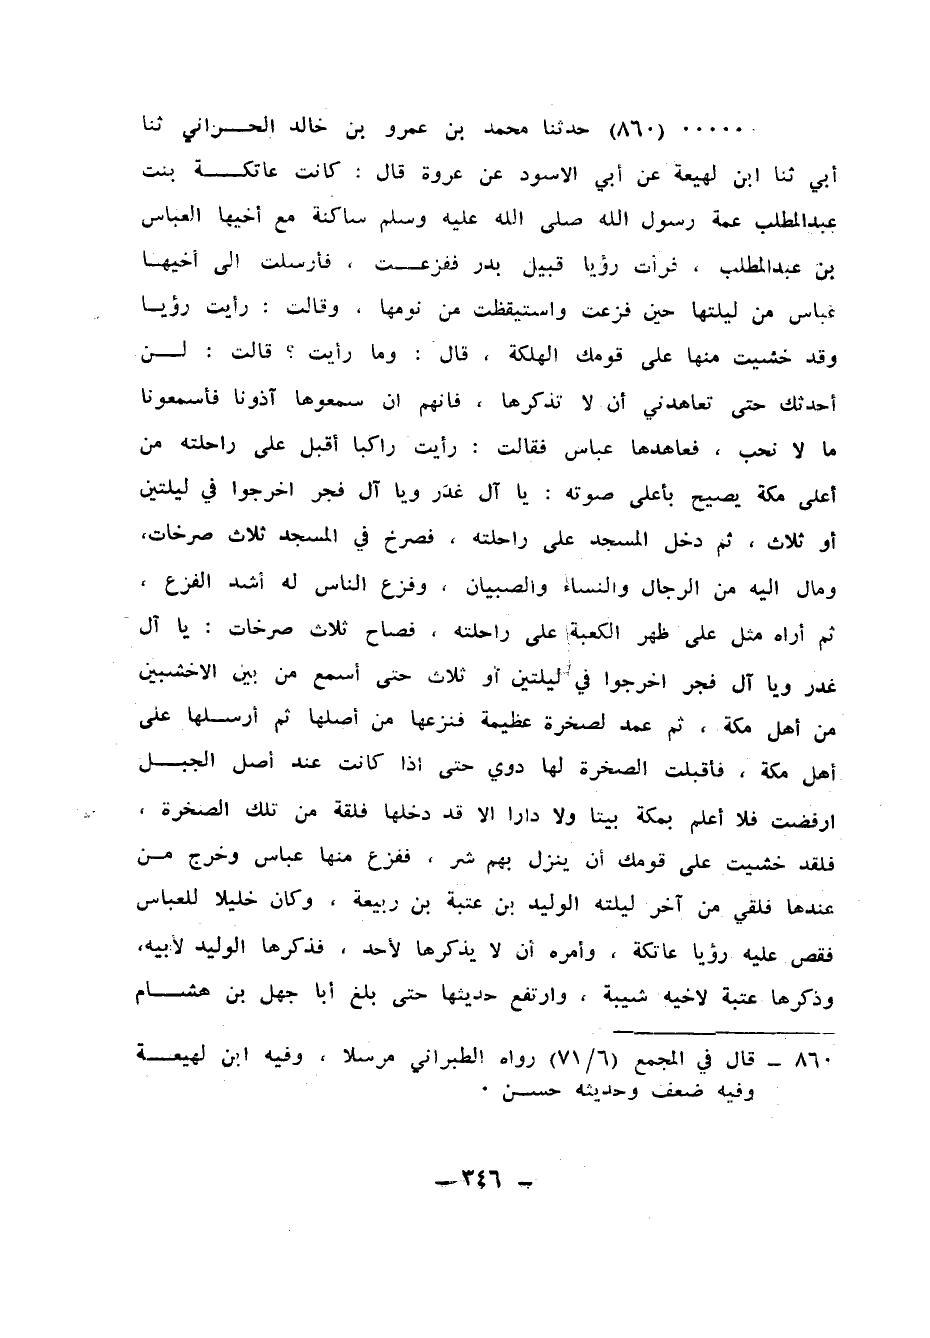 ..... (٨٦٠) حدثنا محمد بن عمرو بن خالد الحراني ثنا
أبي ثنا ابن لهيعة عن أبي الاسود عن عروة قال : كانت عاتكة بنت
عبدالمطلب عمة رسول الله صلى الله عليه وسلم ساكنة مع أخيها العباس
بن عبدالمطلب ، فرأت رؤيا قبيل بدر ففزعت ، فأرسلت الى أخيها
عباس من ليلتها حين فزعت واستيقظت من نومها ، وقالت : رأيت رؤيا
وقد خشيت منها على قومك الهلكة ، قال : وما رأيت ؟ قالت : لن
أحدثك حتى تعاهدني أن لا تذكرها ، فانهم ان سمعوها آذونا فأسمعونا
ما لا نحب ، فعاهدها عباس فقالت : رأيت راكبا أقبل على راحلته من
أعلى مكة يصيح بأعلى صوته : يا آل غدَر ويا آل فجر اخرجوا في ليلتين
أو ثلاث ، ثم دخل المسجد على راحلته ، فصرخ في المسجد ثلاث صرخات،
ومال اليه من الرجال والنساء والصبيان ، وفزع الناس له أشد الفزع ،
ثم أراه مثل على ظهر الكعبة على راحلته ، فصاح ثلاث صرخات : يا آل
غدر ويا آل فجر اخرجوا في ليلتين أو ثلاث حتى أسمع من بين الاخشبين
من أهل مكة ، ثم عمد لصخرة عظيمة فنزعها من أصلها ثم أرسلها على
أهل مكة ، فأقبلت الصخرة لها دوي حتى اذا كانت عند أصل الجبل
ارفضت فلا أعلم بمكة بيتا ولا دارا الا قد دخلها فلقة من تلك الصخرة ،
فلقد خشيت على قومك أن ينزل بهم شر ، ففزع منها عباس وخرج من
عندها فلقي من آخر ليلته الوليد بن عتبة بن ربيعة ، وكان خليلا للعباس
فقص عليه رؤيا عاتكة ، وأمره أن لا يذكرها لأحد ، فذكرها الوليد لأبيه،
وذكرها عتبة لاخيه شيبة ، وارتفع حديثها حتى بلغ أبا جهل بن هشام
٨٦٠ ـ قال في المجمع (٧١/٦) رواه الطبراني مرسلا ، وفيه ابن لهيعة
وفيه ضعف وحديثه حسن .
ـ ٣٤٦ ـ